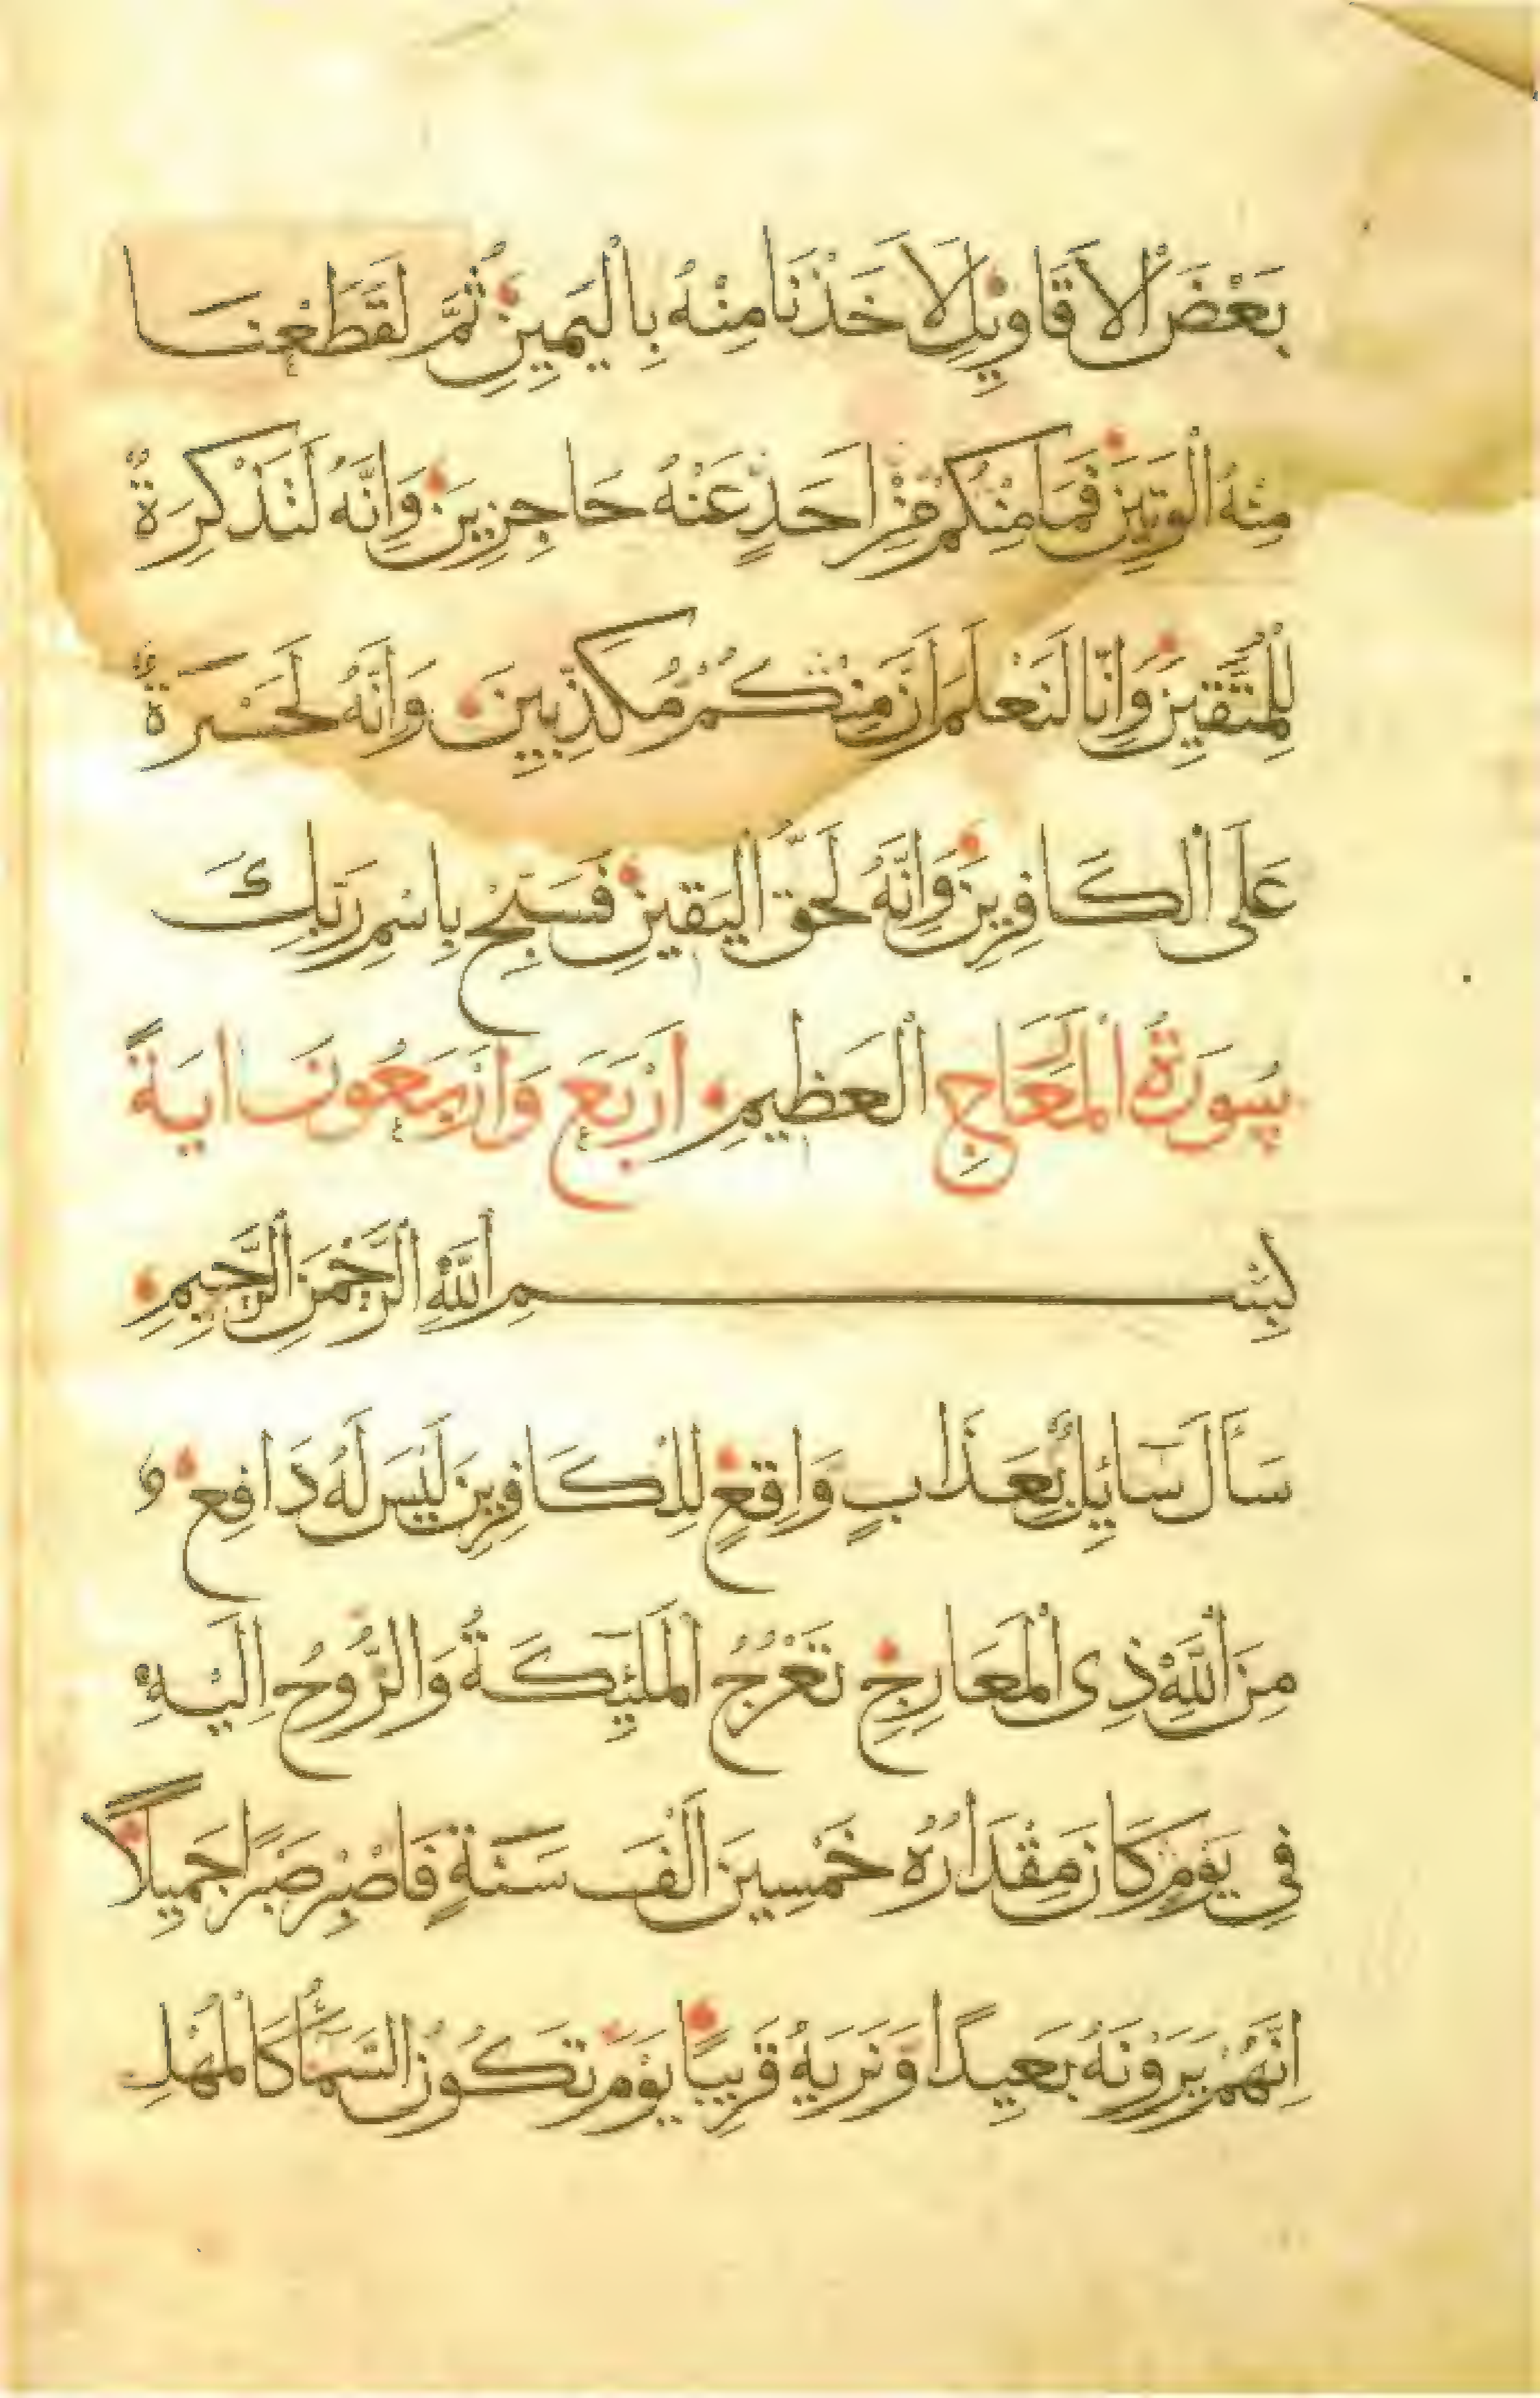 بَعْضَ الْاَقَاوِيلِ لَاَخَذْنَا مِنْهُ بِالْيَمِينِ ثُمَّ لَقَطَعْنَا
مِنْهُ الْوَتِينَ فَمَا مِنْكُمْ مِنْ اَحَدٍ عَنْهُ حَاجِزِينَ وَاِنَّهُ لَتَذْكِرَةٌ
لِلْمُتَّقِينَ وَاِنَّا لَنَعْلَمُ اَنَّ مِنْكُمْ مُكَذِّبِينَ وَاِنَّهُ لَحَسْرَةٌ
عَلَى الْكَافِرِينَ وَاِنَّهُ لَحَقُّ الْيَقِينِ فَسَبِّحْ بِاسْمِ رَبِّكَ
سُورَةُ الْمَعَارج الْعَظِيمِ اَرْبَع وَاَرْبَعُونَ ايَةً
بِسْمِ اللّٰهِ الرَّحْمٰنِ الرَّحِيمِ
سَاَلَ سَائِلٌ بِعَذَابٍ وَاقِعٍ لِلْكَافِرِينَ لَيْسَ لَهُ دَافِعٌ
مِنَ اللّٰهِ ذِى الْمَعَارِجِ تَعْرُجُ الْمَلٰئِكَةُ وَالرُّوحُ اِلَيْهِ
فِى يَوْمٍ كَانَ مِقْدَارُهُ خَمْسِينَ اَلْفَ سَنَةٍ فَاصْبِرْ صَبْرًا جَمِيلًا
اِنَّهُمْ يَرَوْنَهُ بَعِيدًا وَنَرٰيهُ قَرِيبًا يَوْمَ تَكُونُ السَّمَاءُ كَالْمُهْلِ